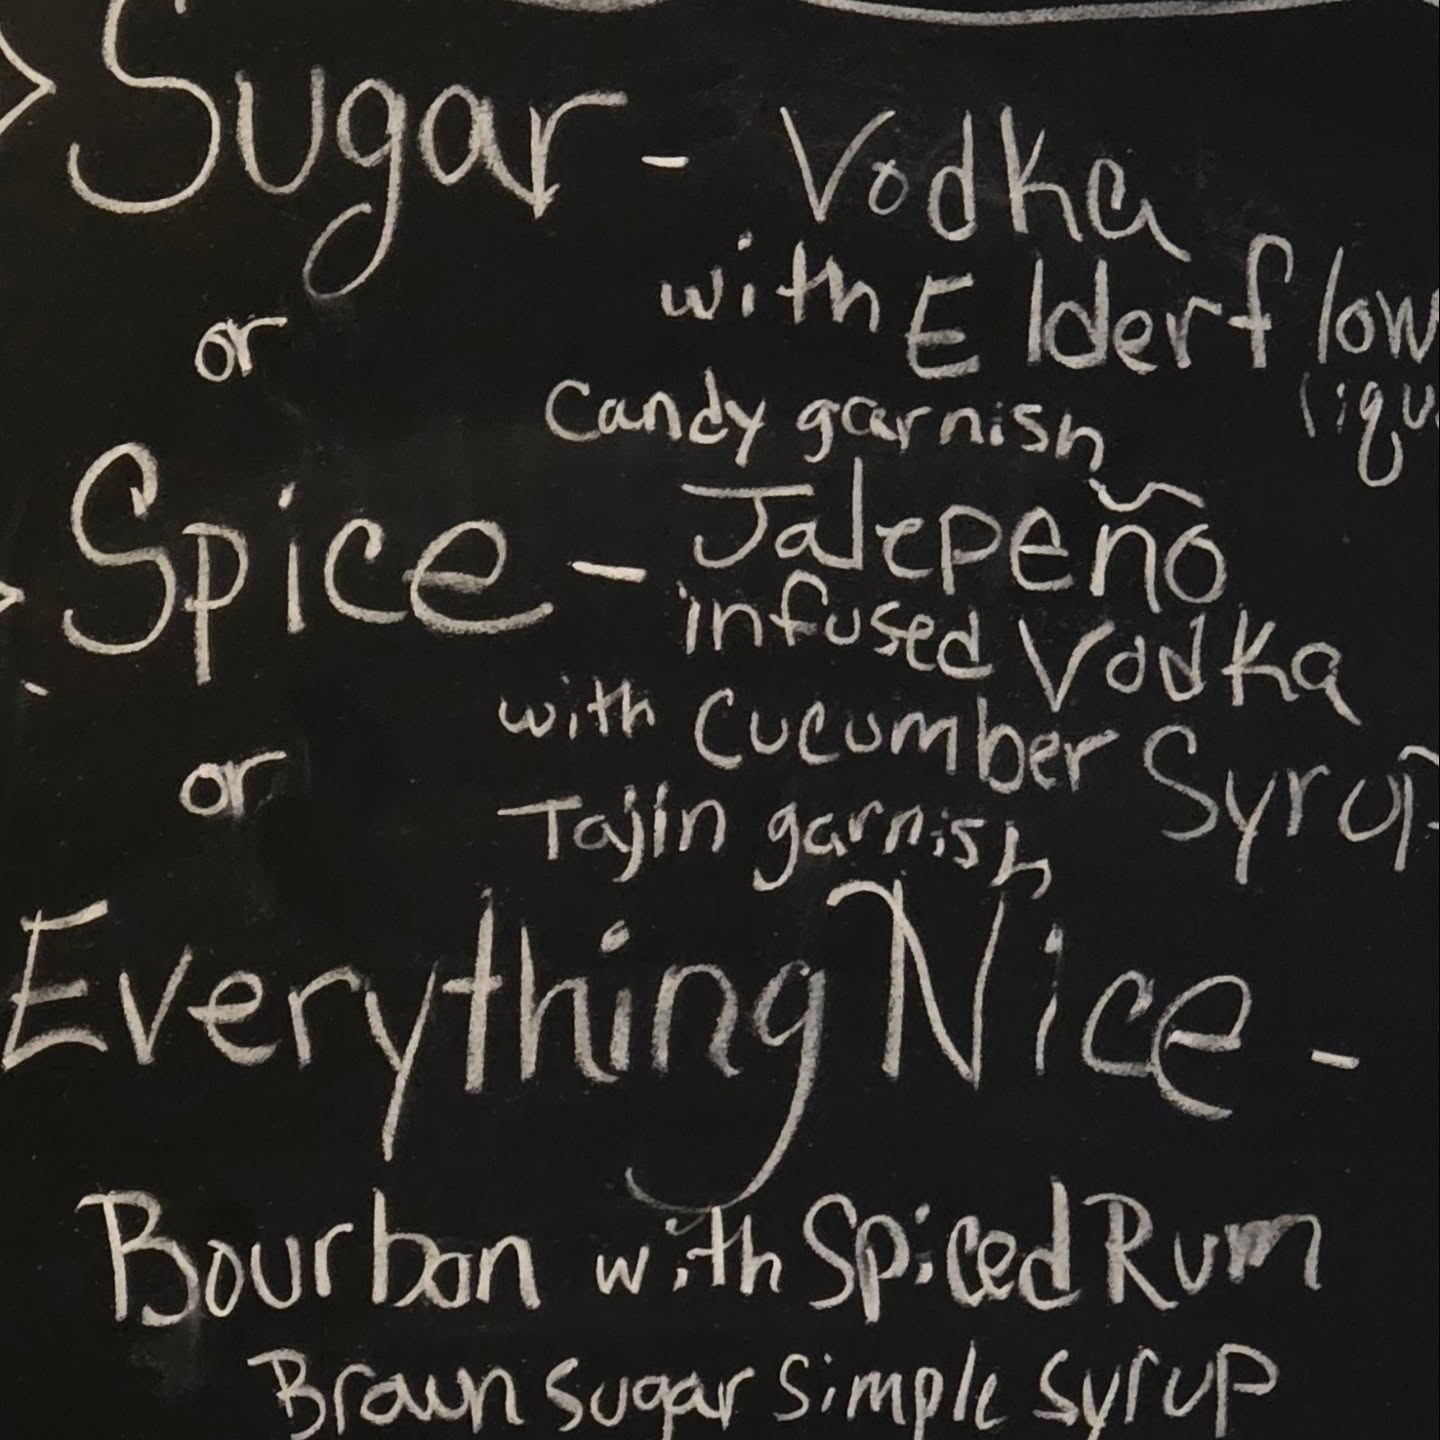 Sugar - Vodka
with Elderflow
liqu
Candy garnish
or
Spice - Jalepeño
infused Vodka
with Cucumber Syrup
Tajin garnish
or
Everything Nice -
Bourbon with Spiced Rum
Brown sugar simple syrup